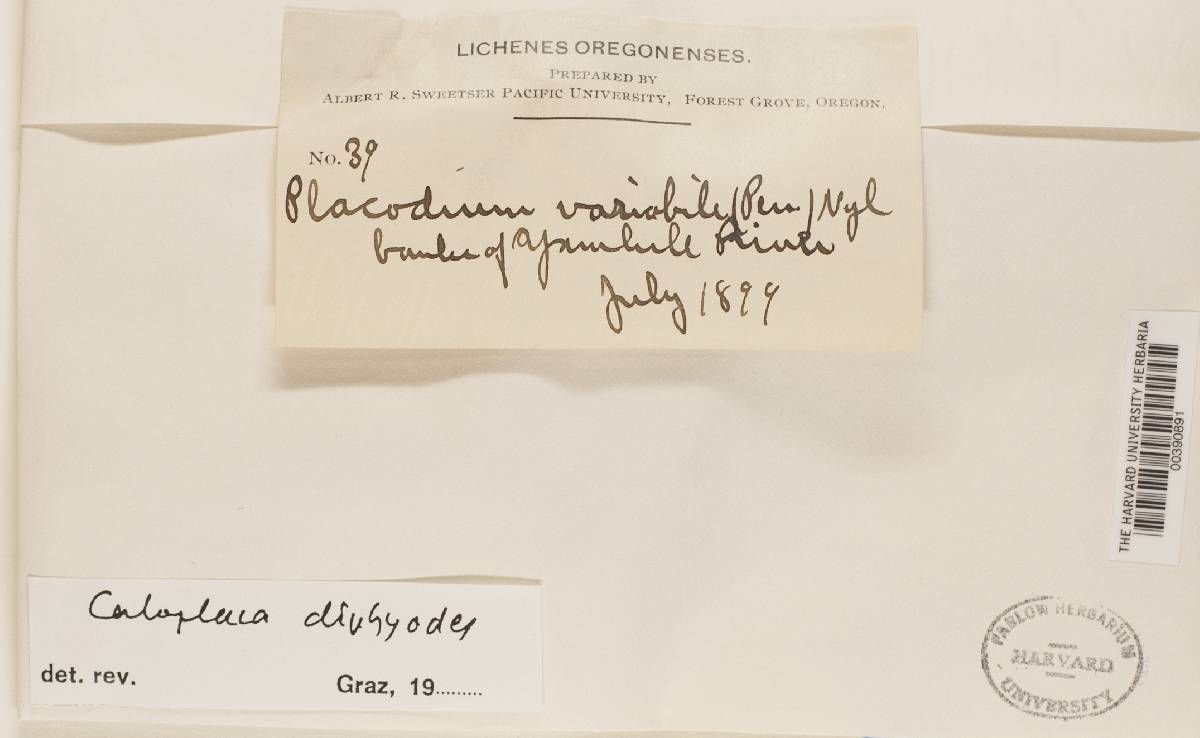 LICHENES OREGONENSES.
PREPARED BY
ALBERT R. SWEETSER PACIFIC UNIVERSITY, FOREST GROVE, OREGON.
No. 39
Placodium variabile (Pers.) Nyl
banks of Yamhill River
July 1899
THE HARVARD UNIVERSITY HERBARIA
00390891
Caloplaca diphyodes
det. rev.
Graz, 19.........
FARLOW HERBARIUM
HARVARD
UNIVERSITY